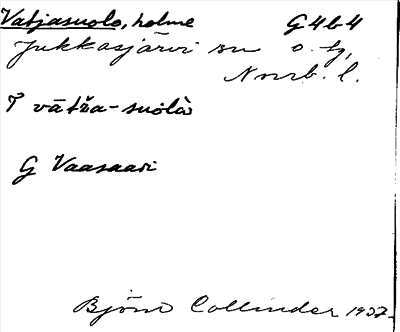 Vatjasuolo, holme G4b4
Jukkasjärvi sn o. tg,
Norrb. l.
T vāťša-suolò
G Vaasaari
Björn Collinder 1937.